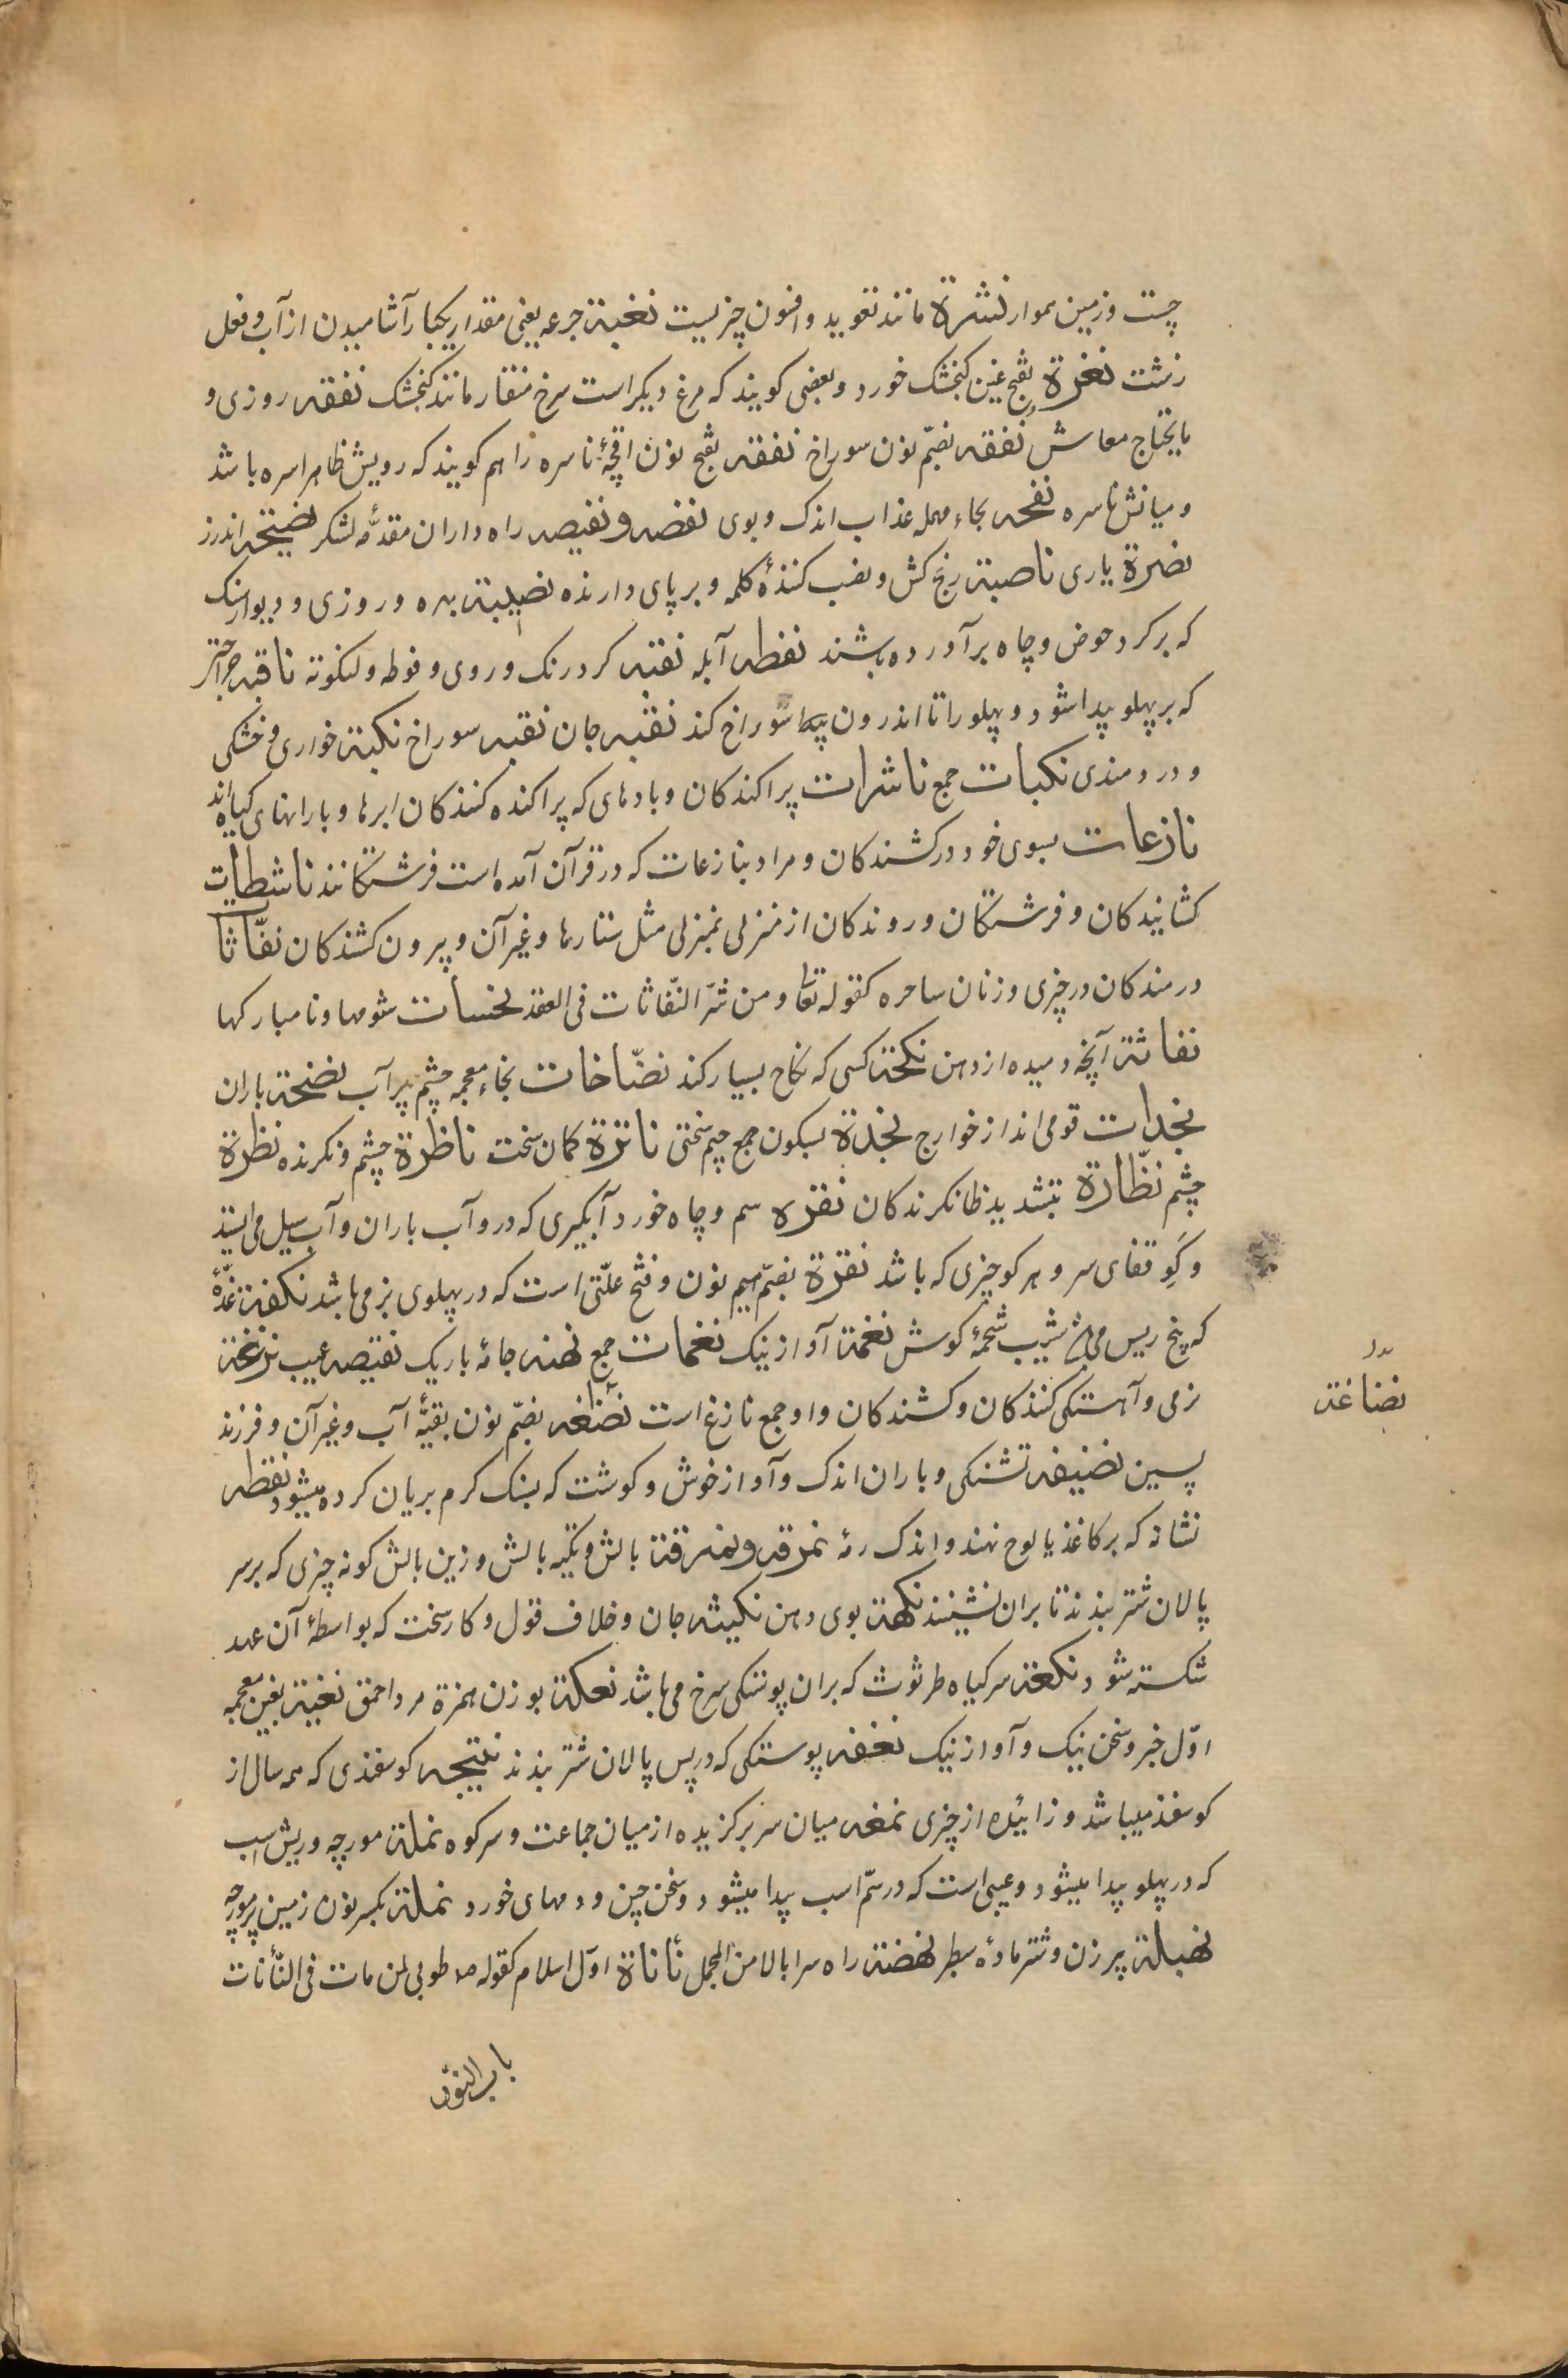 چست و زمین هموار نشرة مانند تعوید و افسون چیزیست نغبة جرعه یعنی مقدار یکبار آشامیدن از آب و فعل
زشت نغرة بفتح غین کنجشک خورد و بعضی کویند که مرغ دیکر است سرخ منقار مانند کنجشک نفقه روزی و
مایحتاج معاش نفقه بضمّ نون سوراخ نفقه بفتح نون اقچهٔ ناسره را هم کویند که رویش ظاهرا سره باشد
و میانش ناسره نفحه بحاء مهمله عذاب اندک و بوی نفضه و نفیضه راه داران مقدّمهٔ لشکر نصیحة اندرز
نصرة یاری ناصبة رنج کش و نصب کنندهٔ کلمه و بر پای دارنده نصیبة بهره و روزی و دیوار سنک
که بر کرد حوض و چاه برآورده باشند نفطه آبله نقبه کرد رنک و روی و فوطه و لنکوته ناقبه
که بر پهلو پیدا شود و پهلو را تا اندرون سوراخ کند نقبه جان نقبه سوراخ نکبة خواری و خشکی
و دردمندی نکبات جمع ناشرات پراکندکان و بادهای که پراکنده کنندکان ابرها و بارانهای کیاه اند
نازعات بسوی خود درکشندکان و مراد بنازعات که در قرآن آمده است فرشتکانند ناشطات
کشایندکان و فرشتکان و روندکان از منزلی بمنزلی مثل ستارها و غیر آن و بیرون کشندکان نفّاثا
درمندکان در چیزی و زنان ساحره کقوله تعا و من شرّ النّفاثات فی العقد نحسات شومها و نامبارکها
نفاثة آنچه دمیده از دهن نکحة کسی که نکاح بسیار کند نضّاخات بخاء معجمه چشم پر آب نضحة باران
نجدات قومی اند از خوارج نجدة بسکون جیم سختی ناترة کمان سخت ناظرة چشم و نکرنده نظرة
چشم نظّارة بتشدید ظا نکرندکان نقره سم و چاه خورد آبکیری که درو آب باران و آب سیل می ایستد
و کَوِ قفای سر و هر کو چیزی که باشد نقرة بضمّ نون و فتح علّتی است که در پهلوی بز می باشد نکفة غدّهٔ
که بیخ ریس شحمهٔ کوش نغمة آواز نیک نغمات جمع نهنه جامهٔ باریک نقیصه عیب نزغة
نرمی و آهستکی کنندکان و کشندکان و او جمع نازغ است بضمّ نون بقیّهٔ آب و غیر آن و فرزند
پسین نضیضه تشنکی و باران اندک و آواز خوش و کوشت که بسنک کرم بریان کرده میشود نقطه
نشانه که بر کاغذ یا لوح نهند و اندک نمرقه و نمرقة بالش و تکیه بالش و زین بالش کونه چیزی که بر سر
پالان شتر بندند تا بران نشینند نکهة بوی دهن نکیثه جان و خلاف قول و کار سخت که بواسطهٔ آن عهد
شکسته شود نکعة سر کیاه طرثوث که بران پوستکی سرخ می باشد نعکة بوزن همزة مرد احمق نغیة بغین معجمه
اوّل خبر و سخن نیک و آواز نیک نغفه پوستکی که در پس پالان شتر بندند نتیجه کوسفندی که همه سال از
کوسفند میباشد و زائیده از چیزی نمغه میان سر برکزیده از میان جماعت و سر کوه نملة مورچه و ریش اسب
که در پهلو پیدا میشود و عیبی است که در سمّ اسب پیدا میشود و سخن چین و دمهای خورد نملة بکسر نون زمین پر مورچه
نهبلة پیر زن و شتر مادهٔ سطبر نهضة راه سرابالا من المجمل نأنأة اوّل اسلام کقوله ص طوبی لمن مات فی النّأنأت
نضاغة
باب النون